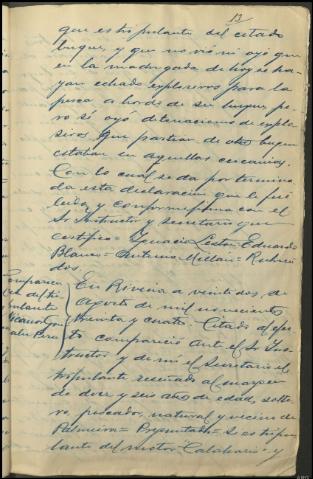 13
que es tripulante del citado
buque, y que no vió ni oyó que
en la madrugada de hoy se ha-
yan echado explosivos para la
pesca a bordo de su buque pe-
ro sí oyó detonaciones de explo-
sivos que partían de otro buque
estaban en aquellas cercanías.
Con lo cual se da por termina-
da esta declaración que le fué
leida, y conforme firma con el
Sr Instructor y secretario que
certifico = Ignacio Eduardo
Blanco = Antonio Millán = Rubrica-
dos.
Comparecen-
cia del tri-
pulante
En Riveira a veintidos de
Agosto de mil novecientos
treinta y cuatro. Citado al efec-
to compareció ante el Sr Ins-
tructor y de mi el Secretario el
tripulante reseñado al margen
de doce y seis años de edad, solte-
ro, pescador, natural y vecino de
Palmeira = Preguntado = Si es tripu-
lante del motor y